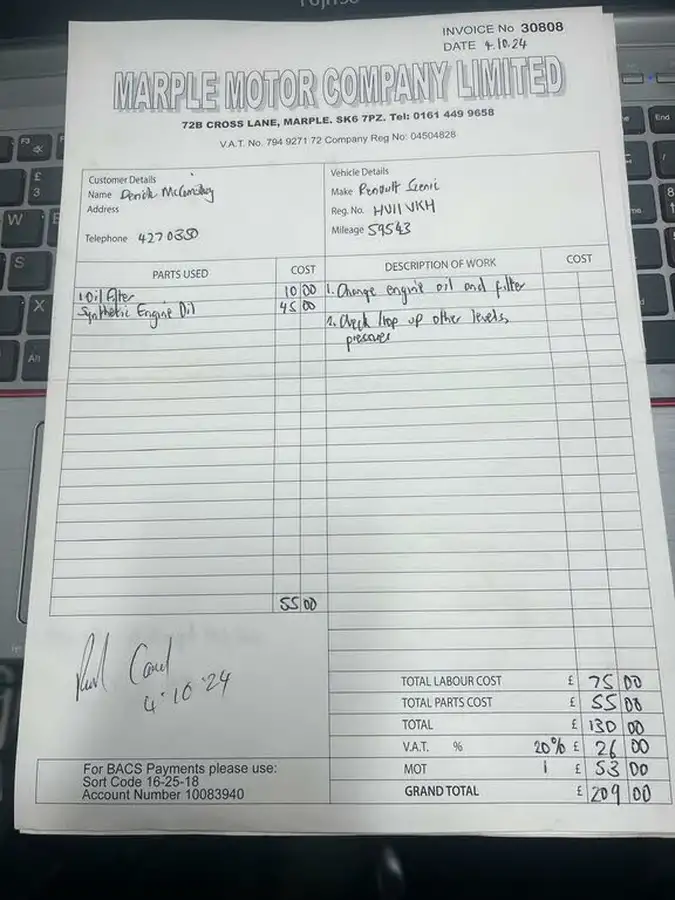 INVOICE No 30808
DATE 4.10.24
MARPLE MOTOR COMPANY LIMITED
72B CROSS LANE, MARPLE. SK6 7PZ. Tel: 0161 449 9658
V.A.T. No. 794 9271 72 Company Reg No: 04504828
Customer Details
Name Derrick
Address
Telephone 4270350
Vehicle Details
Make Renault Scenic
Reg. No. HV11 VKH
Mileage 59543
PARTS USED COST DESCRIPTION OF WORK COST
1 Oil filter 10 00 1. Change engine oil and filter
Synthetic Engine Oil 45 00
2. Check / top up other levels,
pressures
55 00
4.10.24
TOTAL LABOUR COST £ 75 00
TOTAL PARTS COST £ 55 00
TOTAL £ 130 00
V.A.T. % 20% £ 26 00
MOT 1 £ 53 00
GRAND TOTAL £ 209 00
For BACS Payments please use:
Sort Code 16-25-18
Account Number 10083940